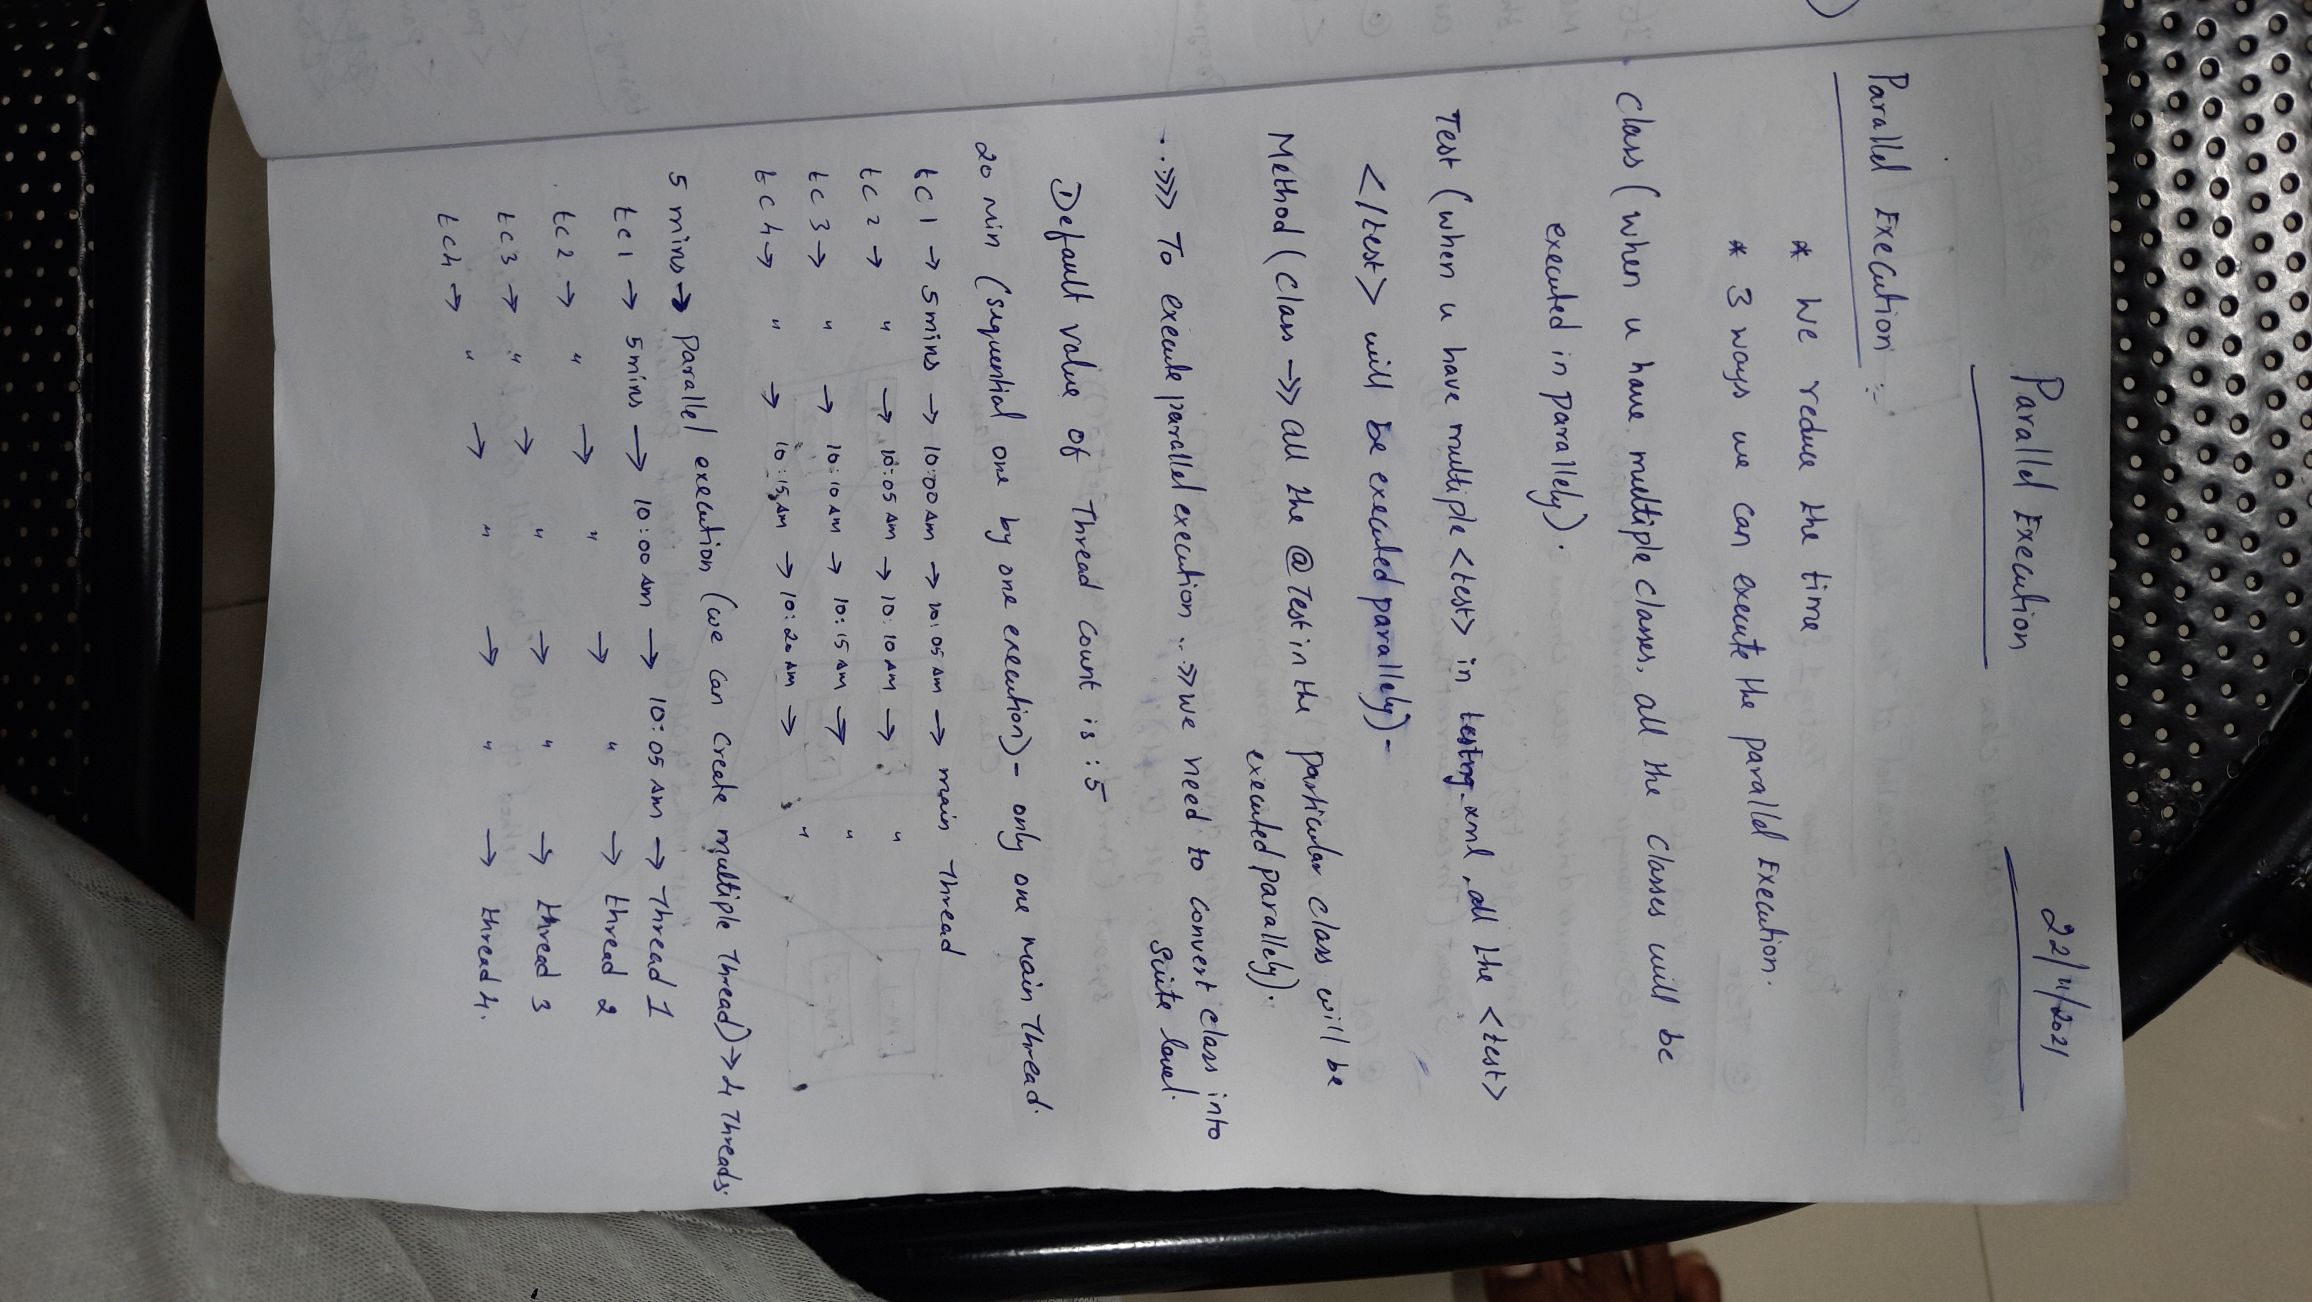 22/4/2021
Parallel Execution
Parallel Execution :-
* We reduce the time
* 3 ways we can execute the parallel Execution.
Class (when u have multiple classes, all the classes will be
executed in parallely).
Test (when u have multiple <test> in testng.xml, all the <test>
</test> will be executed parallely)-
Method (class ->> all the @Test in the particular class will be
executed parallely).
..>>> To execute parallel execution ..>> we need to convert class into
Suite level.
Default value of Thread count is : 5
20 min (sequential one by one execution) - only one main Thread.
tc1 → 5 mins → 10:00 AM → 10:05 AM → main Thread
tc2 → " → 10:05 AM → 10:10 AM → "
tc3 → " → 10:10 AM → 10:15 AM → "
tc4 → " → 10:15 AM → 10:20 AM → "
5 mins → Parallel execution (we can create multiple Thread) → 4 Threads.
tc1 → 5 mins → 10:00 AM → 10:05 AM → Thread 1
tc2 → " → " → " → thread 2
tc3 → " → " → " → thread 3
tc4 → " → " → " → thread 4.